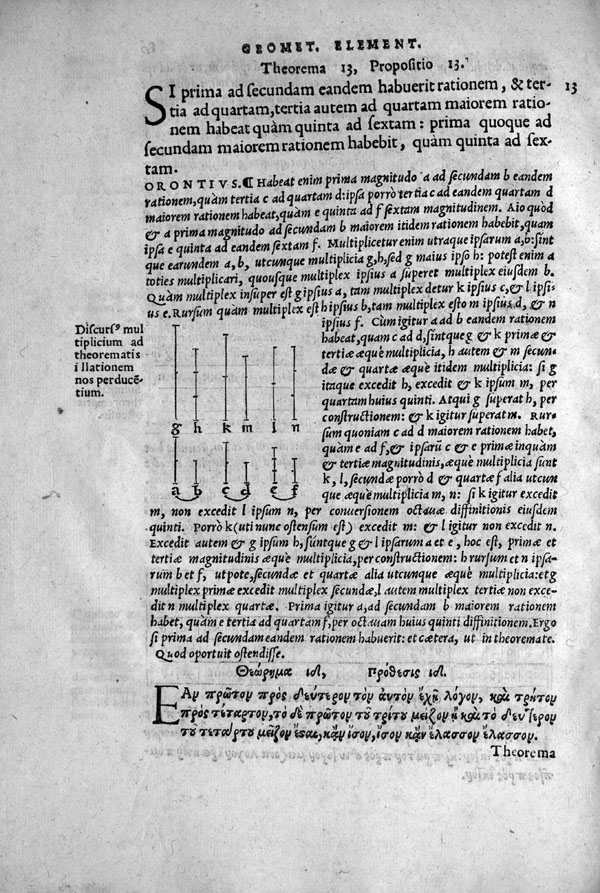 GEOMET. ELEMENT.
Theorema 13, Propositio 13.
SI prima ad secundam eandem habuerit rationem, & ter-
13
tia ad quartam, tertia autem ad quartam maiorem ratio-
nem habeat quàm quinta ad sextam: prima quoque ad
secundam maiorem rationem habebit, quàm quinta ad sex-
tam.
ORONTIVS. ¶ Habeat enim prima magnitudo a ad secundam b eandem
rationem, quàm tertia c ad quartam d: ipsa porrò tertia c ad eandem quartam d
maiorem rationem habeat, quàm e quinta ad f sextam magnitudinem. Aio quòd
& a prima magnitudo ad secundam b maiorem itidem rationem habebit, quàm
ipsa e quinta ad eandem sextam f. Multiplicetur enim utraque ipsarum a, b: sint
que earundem a, b, utcunque multiplicia g, h, sed g maius ipso h: potest enim a
toties multiplicari, quousque multiplex ipsius a superet multiplex eiusdem b.
Quàm multiplex insuper est g ipsius a, tam multiplex detur k ipsius c, & l ipsi-
us e. Rursum quàm multiplex est h ipsius b, tam multiplex esto m ipsius d, & n
Discursꝰ mul
tiplicium ad
theorematis
illationem
nos perducē-
tium.
ipsius f. Cùm igitur a ad b eandem rationem
habeat, quam c ad d, sintque g & k primæ &
tertiæ æquè multiplicia, h autem & m secun-
dæ & quartæ æquè itidem multiplicia: si g
itaque excedit h, excedit & k ipsum m, per
quartam huius quinti. Atqui g superat h, per
constructionem: & k igitur superat m. Rur-
sum quoniam c ad d maiorem rationem habet,
quàm e ad f, & ipsarū c & e primæ inquàm
& tertiæ magnitudinis, æquè multiplicia sunt
k, l, secundæ porrò d & quartæ f alia utcun
que æquè multiplicia m, n: si k igitur excedit
g h k m l n
a b c d e f
m, non excedit l ipsum n, per conuersionem octauæ diffinitionis eiusdem
quinti. Porrò k (uti nunc ostensum est) excedit m: & l igitur non excedit n.
Excedit autem & g ipsum h, súntque g & l ipsarum a et e, hoc est, primæ et
tertiæ magnitudinis æquè multiplicia, per constructionem: h rursum et n ipsa-
rum b et f, utpote, secundæ et quartæ alia utcunque æquè multiplicia: et g
multiplex primæ excedit multiplex secundæ, l autem multiplex tertiæ non exce-
dit n multiplex quartæ. Prima igitur a, ad secundam b maiorem rationem
habet, quàm e tertia ad quartam f, per octauam huius quinti diffinitionem. Ergo
si prima ad secundam eandem rationem habuerit: et cætera, ut in theoremate.
Quod oportuit ostendisse.
Θεώρημα ιδ, Πρόθεσις ιδ.
Εαν πρῶτον πρὸς δεύτερον τὸν αὐτὸν ἔχῃ λόγον, καὶ τρίτον
πρὸς τέταρτον, τὸ δὲ πρῶτον τοῦ τρίτου μεῖζον ᾖ καὶ τὸ δεύτερον
τοῦ τετάρτου μεῖζον ἔσται, κἂν ἴσον, ἴσον κἂν ἔλασσον ἔλασσον.
Theorema